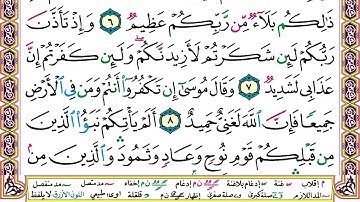 ذَٰلِكُم بَلَآءٌ مِّن رَّبِّكُمْ عَظِيمٌ ٦ وَإِذْ تَأَذَّنَ
رَبُّكُمْ لَئِن شَكَرْتُمْ لَأَزِيدَنَّكُمْ ۖ وَلَئِن كَفَرْتُمْ إِنَّ
عَذَابِى لَشَدِيدٌ ٧ وَقَالَ مُوسَىٰٓ إِن تَكْفُرُوٓا۟ أَنتُمْ وَمَن فِى ٱلْأَرْضِ
جَمِيعًا فَإِنَّ ٱللَّهَ لَغَنِىٌّ حَمِيدٌ ٨ أَلَمْ يَأْتِكُمْ نَبَؤُا۟ ٱلَّذِينَ
مِن قَبْلِكُمْ قَوْمِ نُوحٍ وَعَادٍ وَثَمُودَ ۛ وَٱلَّذِينَ مِنۢ